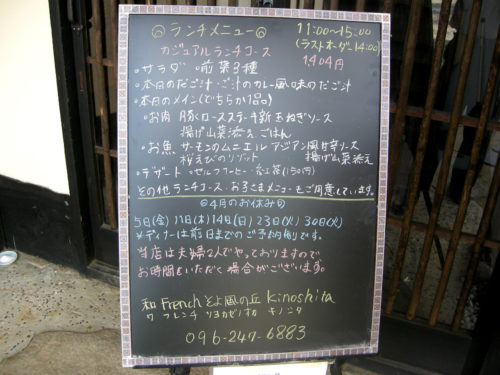 ランチメニュー
11:00〜15:00
(ラストオーダー14:00)
カジュアルランチコース 1,404円
・サラダ ・前菜3種
・本日のだご汁・ご汁のカレー風味のだご汁
・本日のメイン(どちらか1品)
・お肉 豚ロースステーキ新玉ねぎソース
揚げ山菜添え ごはん
・お魚 サーモンのムニエル アジアン風甘辛ソース
桜えびのリゾット 揚げ山菜添え
・デザート ・セルフコーヒー・紅茶(150円)
その他ランチコース・お子さまメニューもご用意しています。
4月のお休み
5日(金) 11日(木) 14日(日) 23日(火) 30日(火)
※ディナーは前日までのご予約制りです。
当店は夫婦2人でやっておりますので
お時間をいただく場合がございます。
和French そよ風の丘 Kinoshita
ワ フレンチ ソヨカゼノオカ キノシタ
096-247-6883